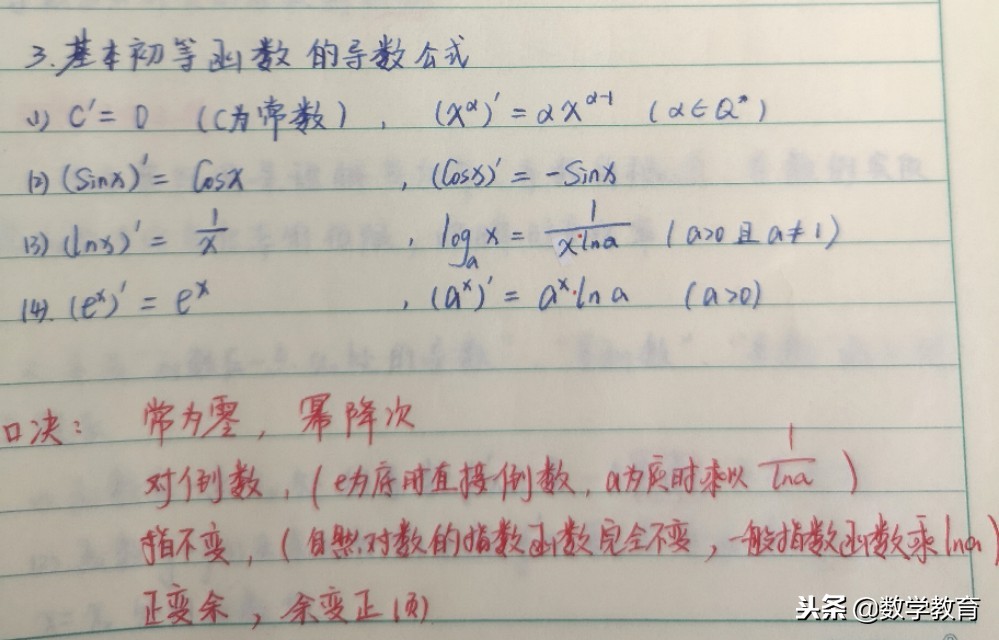 3.基本初等函数的导数公式
(1) C′= 0 (C为常数), (xᵅ)′= αxᵅ⁻¹ (α∈Q*)
(2) (Sinx)′= Cosx , (Cosx)′= -Sinx
(3) (lnx)′= 1/x , logₐx = 1/(x·lna) (a>0且a≠1)
(4). (eˣ)′= eˣ , (aˣ)′= aˣ·lna (a>0)
口决: 常为零, 幂降次
对倒数, (e为底时直接倒数, a为底时乘以 1/lna )
指不变, (自然对数的指数函数完全不变, 一般指数函数乘lna)
正变余, 余变正(负)
头条 @数学教育